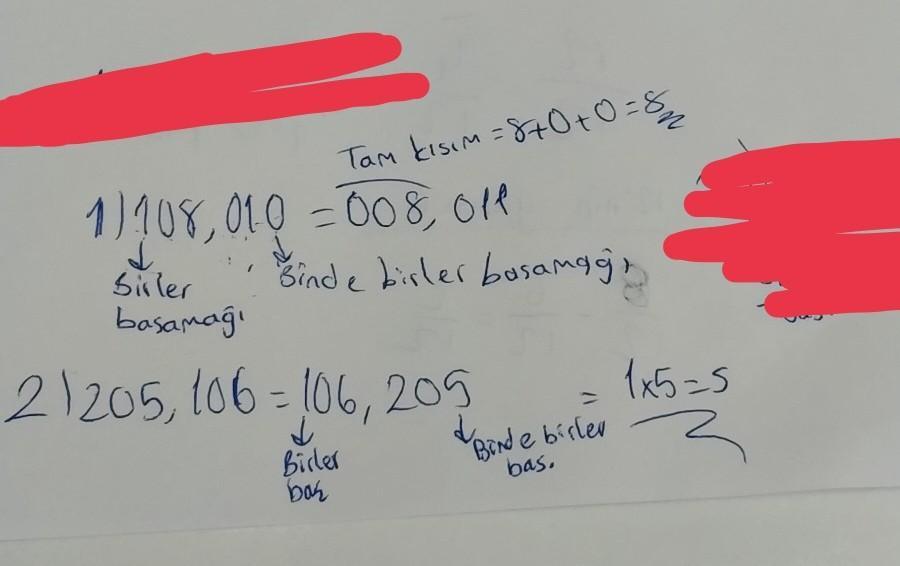 Tam kısım = 8+0+0=8
1) 108,010 = 008,011
Birler basamağı
Binde birler basamağı
2) 205,106 = 106,205 = 1x5=5
Birler bas
Binde birler bas.